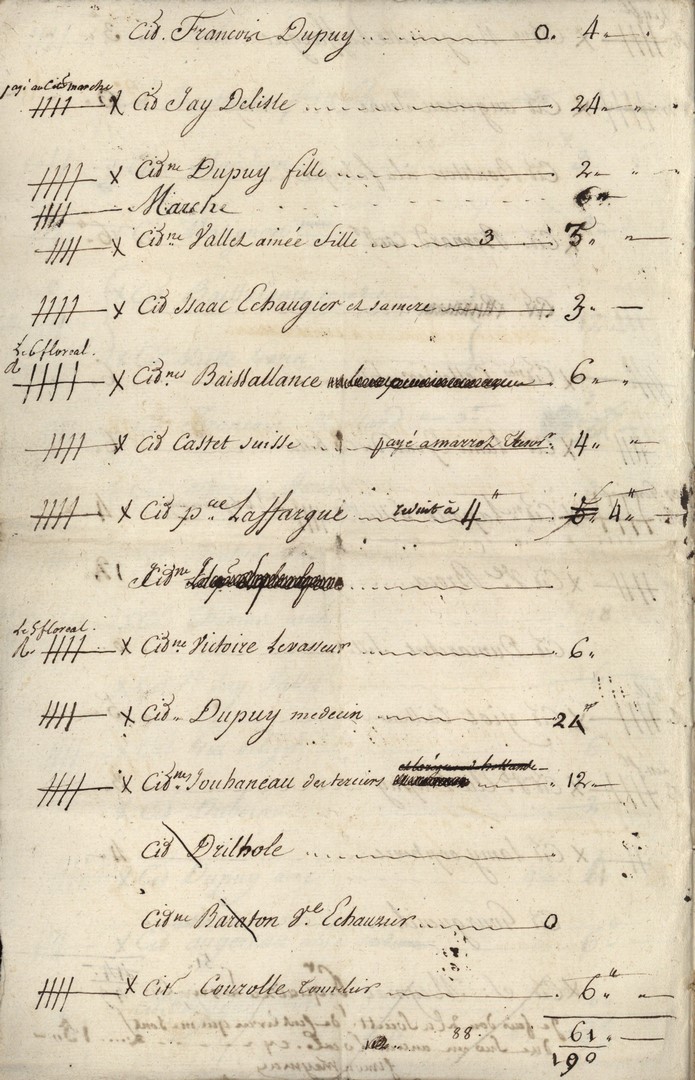 Cid. Francois Dupuy 0. 4
payé au Cid. marche
X Cid Jay Delille 24
X Cid.ne Dupuy fille 2
Marche 6
X Cid.ne Vallet ainée fille 3 3
X Cid Isaac Echaugier et sa mere 3
Le 6 floreal.
X Cid.nes Baissallance 6
X Cid Castet suisse payé a marrot 4
X Cid p.re Laffargue reduit à 4 5 4
Cid.ne
Le 5 floreal.
X Cid.ne Victoire Levasseur 6
X Cid. Dupuy medecin 24
X Cid.ne Jouhaneau des terciers 12
Cid Drilhole
Cid.ne Baraton v.e Echauzier 0
X Cit. Courolle 6
61
88.
190